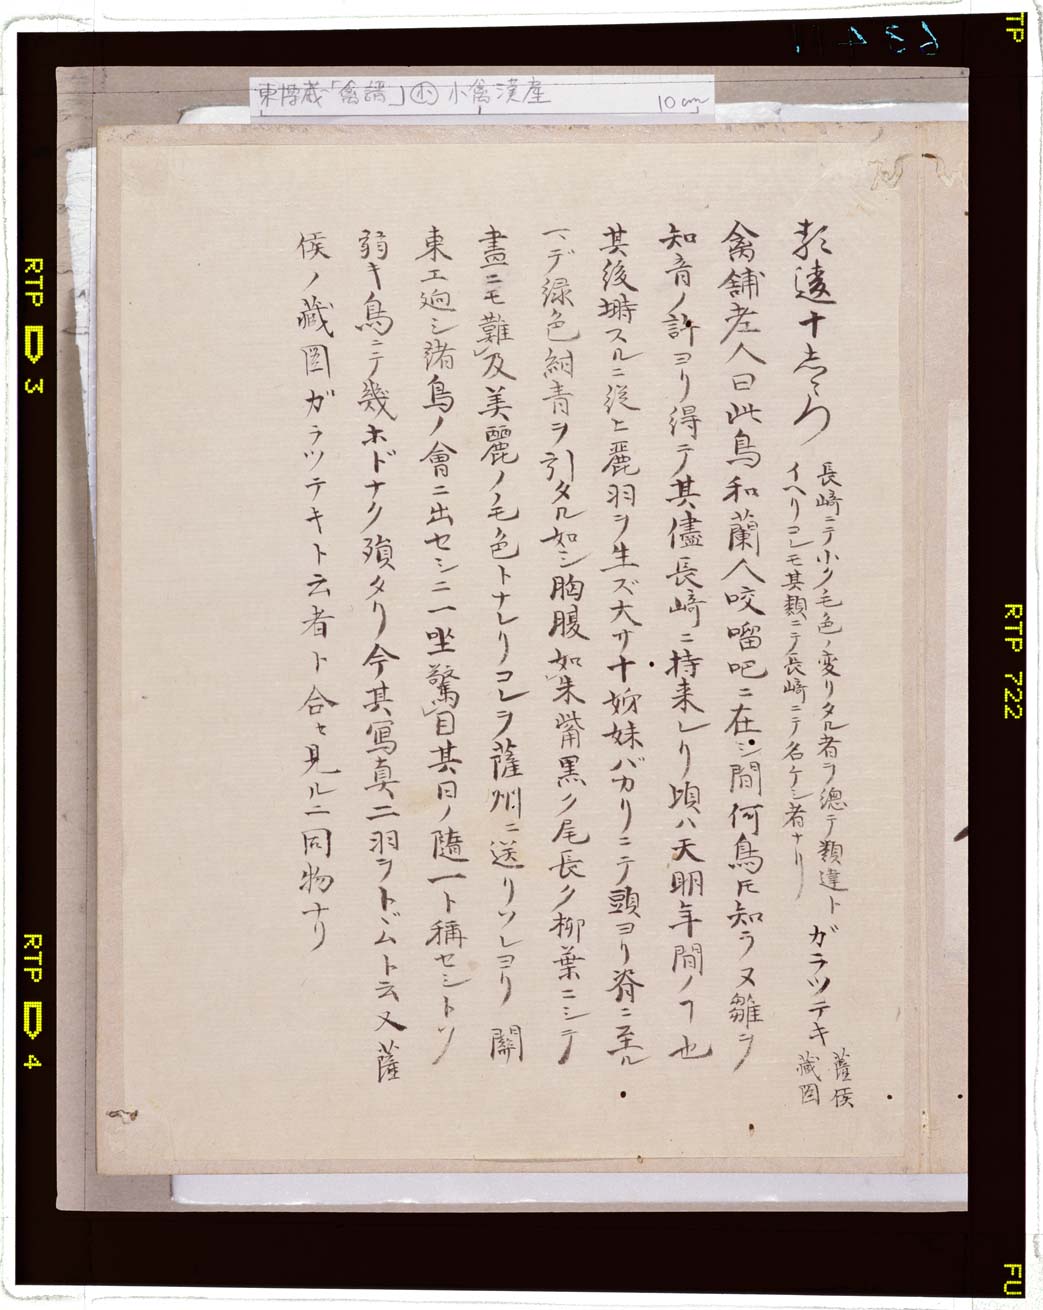 東博蔵「禽譜」㊥ 小禽漢産
10cm
類違十志まつ
長崎ニテ小クノ毛色ノ変リタル者ヲ總テ類違ト
イヘリコレモ其類ニテ長崎ニテ名ケシ者ナリ
ガラツテキ
薩侯
藏圖
禽舗老人曰此鳥和蘭人咬��吧ニ在シ間何鳥𪜈知ラヌ雛ヲ
知音ノ許ヨリ得テ其儘長崎ニ持来レリ頃ハ天明年間ノヿ也
其後塒スルニ従ヒ麗羽ヲ生ズ大サ十姉妹バカリニテ頭ヨリ脊ニ至ル
マデ緑色紺青ヲ引タル如シ胸腹如朱觜黒ク尾長ク柳葉ニシテ
畫ニモ難及美麗ノ毛色トナレリコレヲ薩州ニ送リソレヨリ關
東エ廻シ諸鳥ノ會ニ出セシニ一坐驚目其日ノ隨一ト稱セシトゾ
弱キ鳥ニテ幾ホドナク殞タリ今其寫真二羽ヲトヾムト云又薩
侯ノ藏圖ガラツテキト云者ト合セ見ルニ同物ナリ
RTP 3
RTP 4
RTP 722